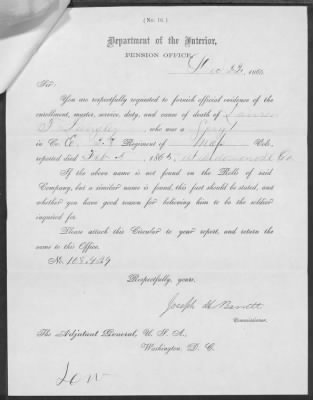 (No. 10.)
Department of the Interior,
PENSION OFFICE,
Dec 22, 186
Sir:
You are respectfully requested to furnish official evidence of the
enrollment, muster, service, duty, and cause of death of
who was a
in Co. Regiment of Mass Vols.
reported died Feb 186
If the above name is not found on the Rolls of said
Company, but a similar name is found, this fact should be stated, and
whether you have good reason for believing him to be the soldier
inquired for.
Please attach this Circular to your report, and return the
same to this Office.
No. 108,429
Respectfully, yours,
Joseph H Barrett
Commissioner.
The Adjutant General, U. S. A.,
Washington, D. C.